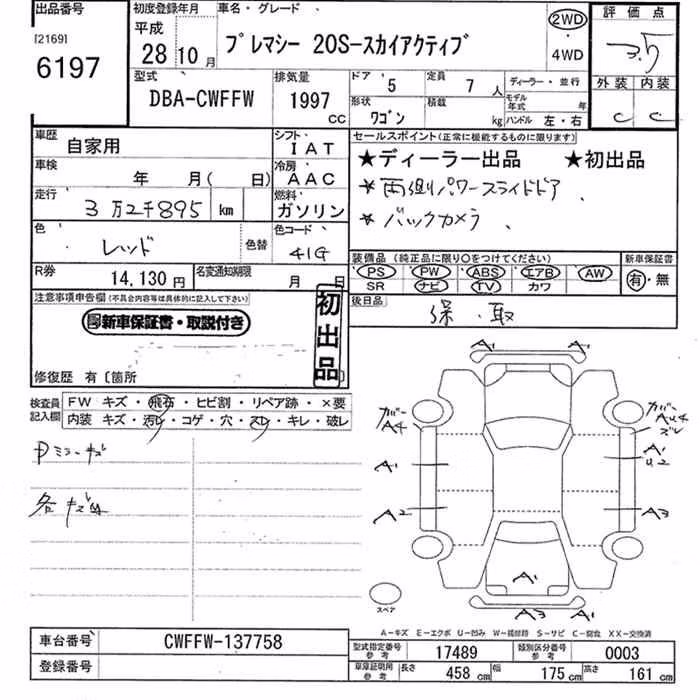 出品番号
[2169]
6197
初度登録年月
平成
28 10 月
車名・グレード
プレマシー 20S-スカイアクティブ
2WD
・
4WD
評価点
3.5
外装 内装
C C
型式
DBA-CWFFW
排気量
1997
CC
ドア 5
定員 7 人
ディーラー・並行
形状 ワゴン
積載 kg
モデル年式 年
ハンドル 左・右
車歴 自家用
シフト IAT
車検 年 月( 日)
冷房 AAC
走行 3万2千895 km
燃料 ガソリン
色 レッド
色替
色コード 41G
R券 14,130 円
名変通知期限 月 日
セールスポイント(正常に機能するものに限ります)
★ディーラー出品 ★初出品
*両側パワースライドドア
*バックカメラ
装備品 (純正品に限り○をつけてください)
PS PW ABS エアB AW
SR ナビ TV カワ
新車保証書
有・無
後日品
保・取
注意事項申告欄(不具合内容等は具体的に記入して下さい)
新車保証書・取説付き
初出品
修復歴 有〔箇所 〕
検査員記入欄
FW キズ・飛石・ヒビ割・リペア跡・×要
内装 キズ・汚レ・コゲ・穴・スレ・キレ・破レ
各キズ凹
A1 A1
カバー A4
カバー AU4 ズレ
A1
A1 U2
A2
A3
A1
A3 A1
スペア
A-キズ E-エクボ U-凹み W-補修跡 S-サビ C-腐食 XX-交換済
車台番号 CWFFW-137758
登録番号
型式指定番号 参考 17489
類別区分番号 参考 0003
車庫証明用 参考 長さ 458 cm 幅 175 cm 高さ 161 cm